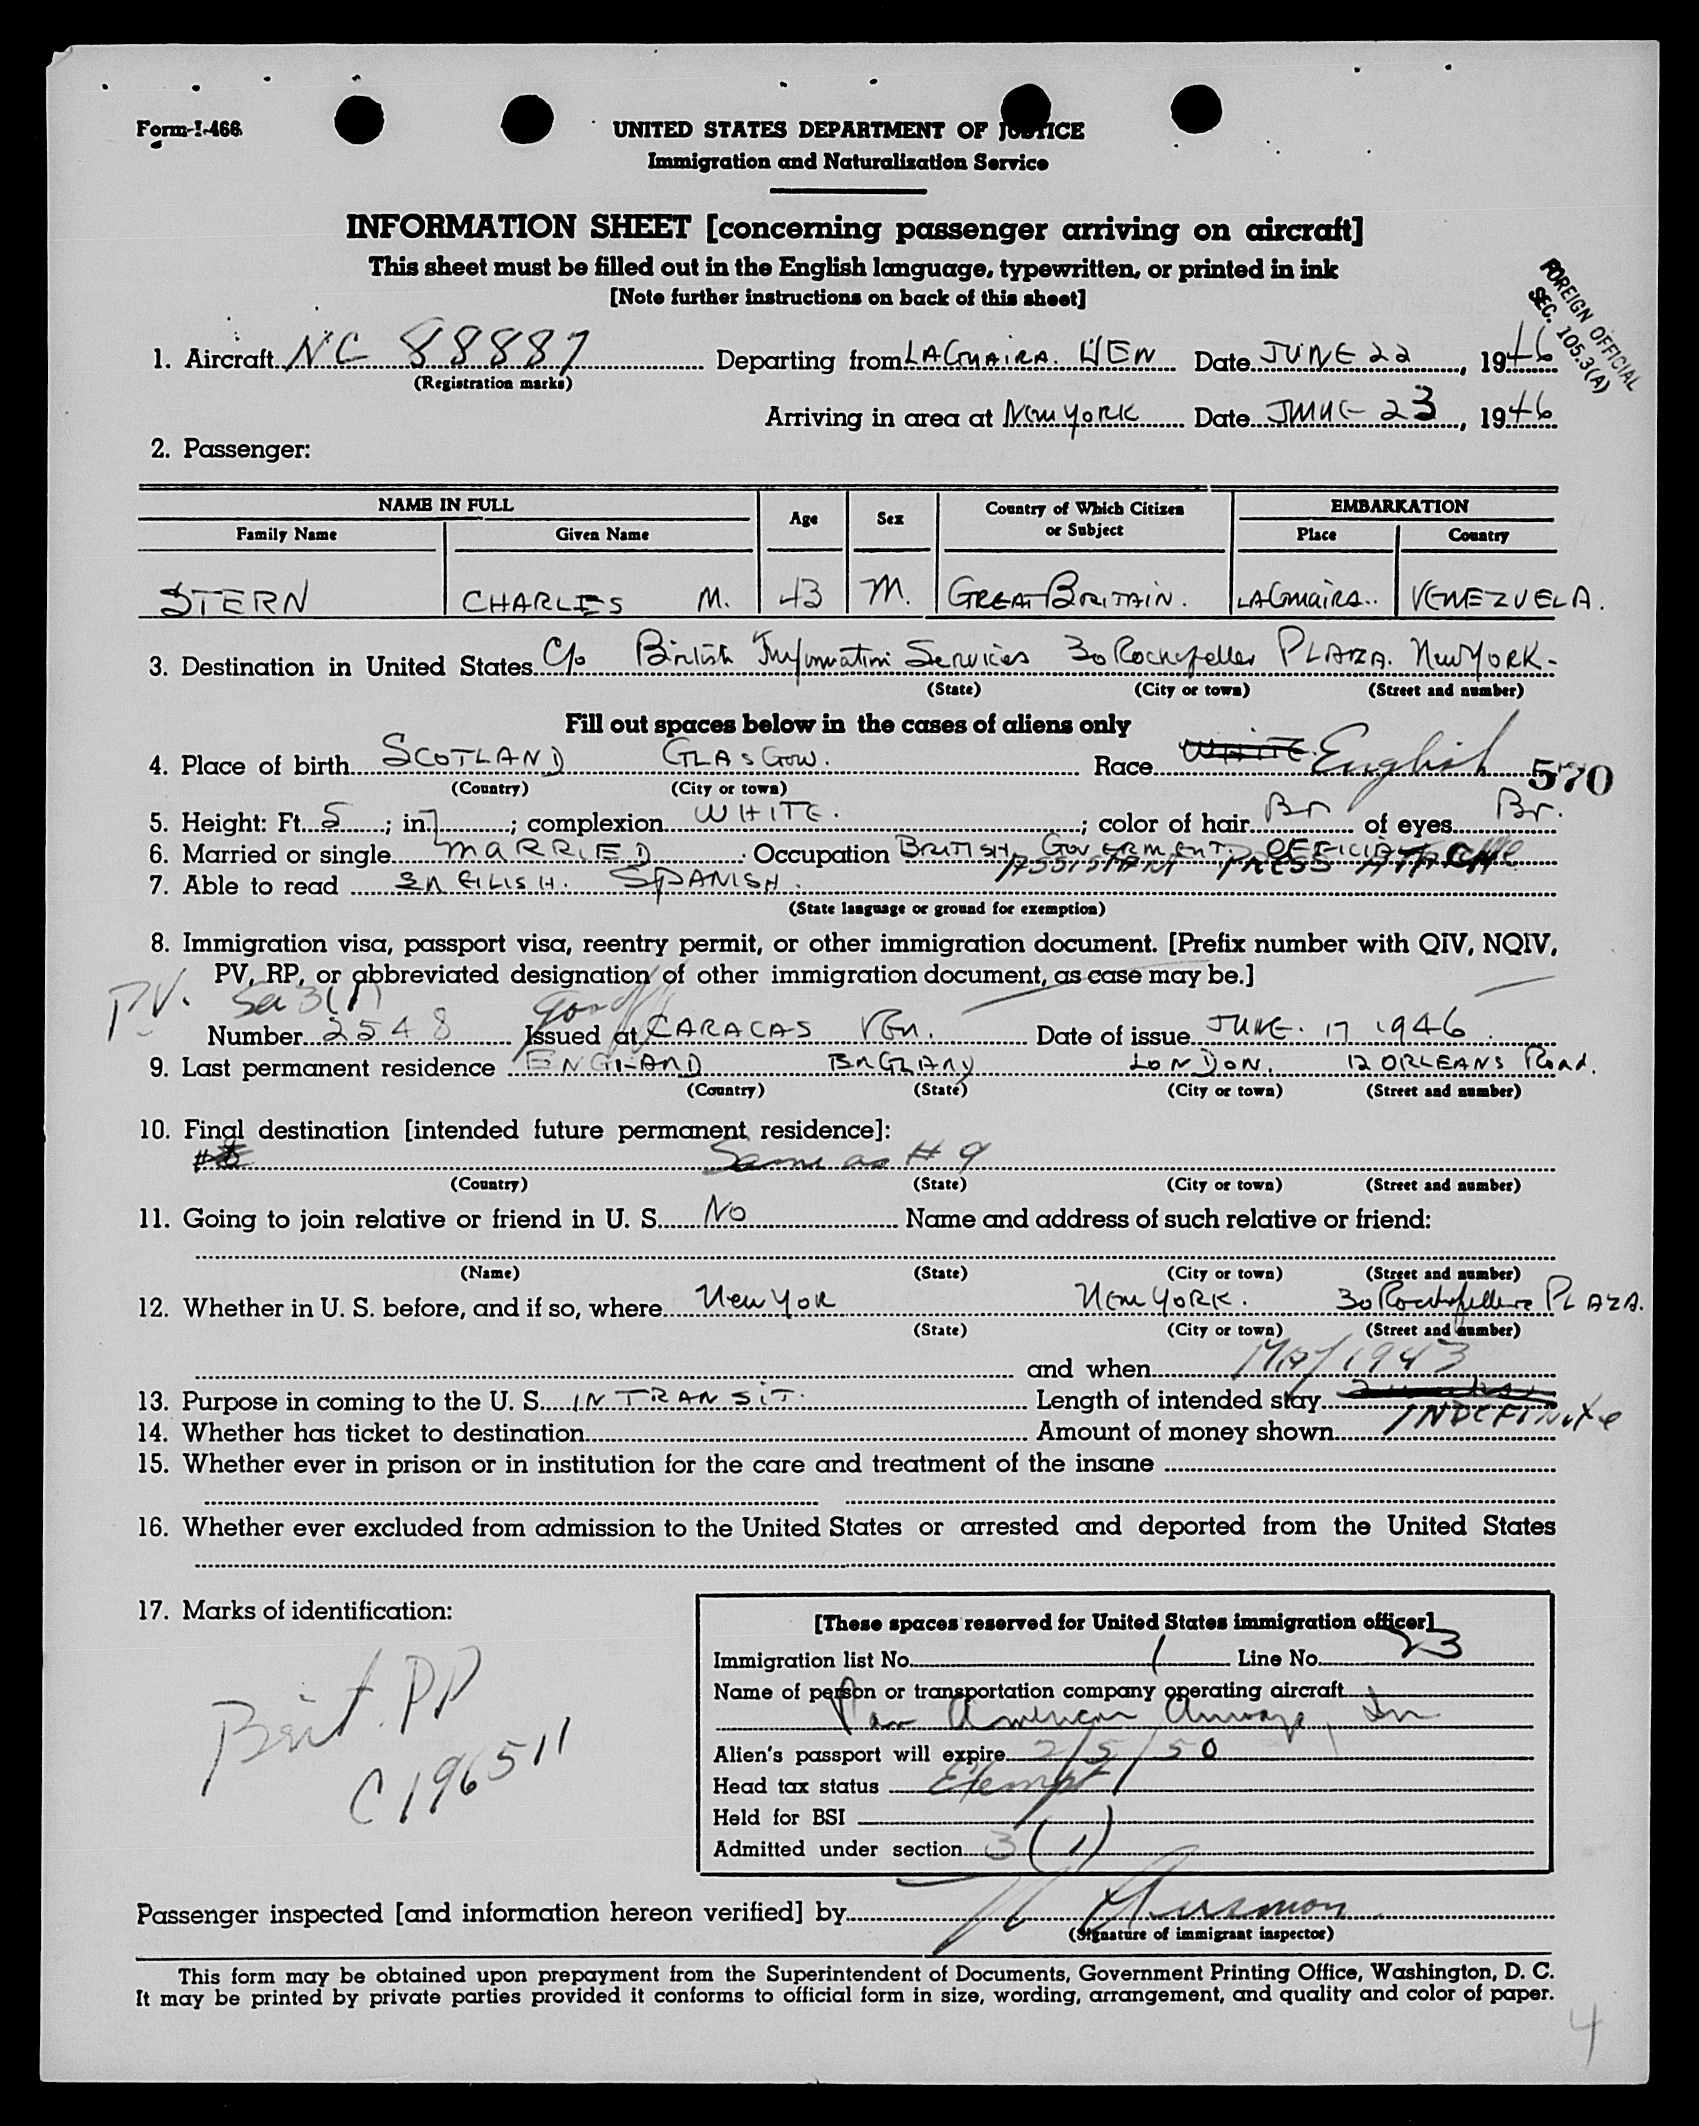 Form I-466
UNITED STATES DEPARTMENT OF JUSTICE
Immigration and Naturalization Service
INFORMATION SHEET [concerning passenger arriving on aircraft]
This sheet must be filled out in the English language, typewritten, or printed in ink
[Note further instructions on back of this sheet]
FOREIGN OFFICIAL
SEC. 105.3(A)
1. Aircraft NC 88887 Departing from LAGUAIRA. VEN Date JUNE 22, 1946
(Registration marks)
Arriving in area at New YORK Date JUNE 23, 1946
2. Passenger:
NAME IN FULL Age Sex Country of Which Citizen or Subject EMBARKATION
Family Name Given Name Place Country
STERN CHARLES M. 43 M. GREAT BRITAIN. LAGuaiRA.. VENEZUELA.
3. Destination in United States C/o British Information Services 30 Rockefeller PLAZA. New YORK-
(State) (City or town) (Street and number)
Fill out spaces below in the cases of aliens only
4. Place of birth SCOTLAND GLASGOW. Race WHITE English 570
(Country) (City or town)
5. Height: Ft. 5; in. 7; complexion WHITE.; color of hair Br of eyes Br.
6. Married or single MARRIED. Occupation BRITISH GOVERMENT. OFFICIAL
ASSISTANT PRESS ATTACHE
7. Able to read ENGLISH. SPANISH.
(State language or ground for exemption)
8. Immigration visa, passport visa, reentry permit, or other immigration document. [Prefix number with QIV, NQIV,
PV, RP, or abbreviated designation of other immigration document, as case may be.]
PV. Sec 3(1) Gov
Number 2548 Issued at CARACAS VEn. Date of issue JUNE. 17 1946.
9. Last permanent residence ENGLAND ENGLAND LONDON. 12 ORLEANS Road.
(Country) (State) (City or town) (Street and number)
10. Final destination [intended future permanent residence]:
Same as # 9
(Country) (State) (City or town) (Street and number)
11. Going to join relative or friend in U. S. NO Name and address of such relative or friend:
(Name) (State) (City or town) (Street and number)
12. Whether in U. S. before, and if so, where New YOR New YORK. 30 Rockefeller PLAZA.
(State) (City or town) (Street and number)
and when MAY 1943
13. Purpose in coming to the U. S. IN TRANSIT. Length of intended stay
INDEFINITE
14. Whether has ticket to destination Amount of money shown
15. Whether ever in prison or in institution for the care and treatment of the insane
16. Whether ever excluded from admission to the United States or arrested and deported from the United States
17. Marks of identification:
Brit. PP
C196511
[These spaces reserved for United States immigration officer]
Immigration list No. 1 Line No. 23
Name of person or transportation company operating aircraft
Pan American Airways, In
Alien's passport will expire 2/5/50
Head tax status Exempt
Held for BSI
Admitted under section 3(1)
Passenger inspected [and information hereon verified] by
(Signature of immigrant inspector)
This form may be obtained upon prepayment from the Superintendent of Documents, Government Printing Office, Washington, D. C.
It may be printed by private parties provided it conforms to official form in size, wording, arrangement, and quality and color of paper.
4